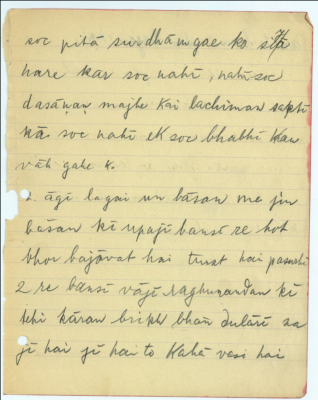 soc pitā surdhām gae ko sītā
hare kar soc nahī, nahī soc
dasānan majhe kai lachiman sakti
kā soc nahī ek soc bhabhī kan
vāh gahe k.
2. āgī lagai un bāsan me jin
bāsan kī upajī bansī re hot
bhor bajāvat hai turat hai
2 re bansī vājī raghunandan kī
tehi kāran brikh bhān dulārī sa
jī hai jī hai to kahā vasi hai